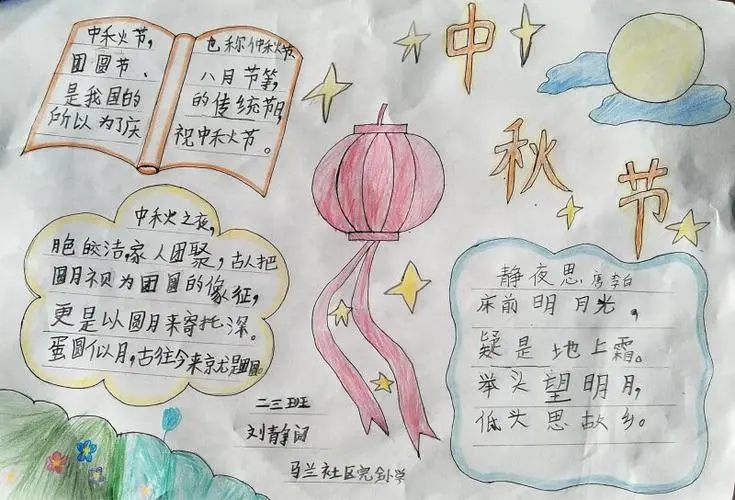 中秋节
中秋节,
团圆节、
是我国的
所以为了庆
也称仲秋节
八月节等,
的传统节日,
祝中秋节。
中秋之夜,
皎洁,家人团聚,古人把
圆月视为团圆的象征,
更是以圆月来寄托深。
月,古往今来
静夜思 唐李白
床前明月光,
疑是地上霜。
举头望明月,
低头思故乡。
二三班
刘静
马兰社区完全小学